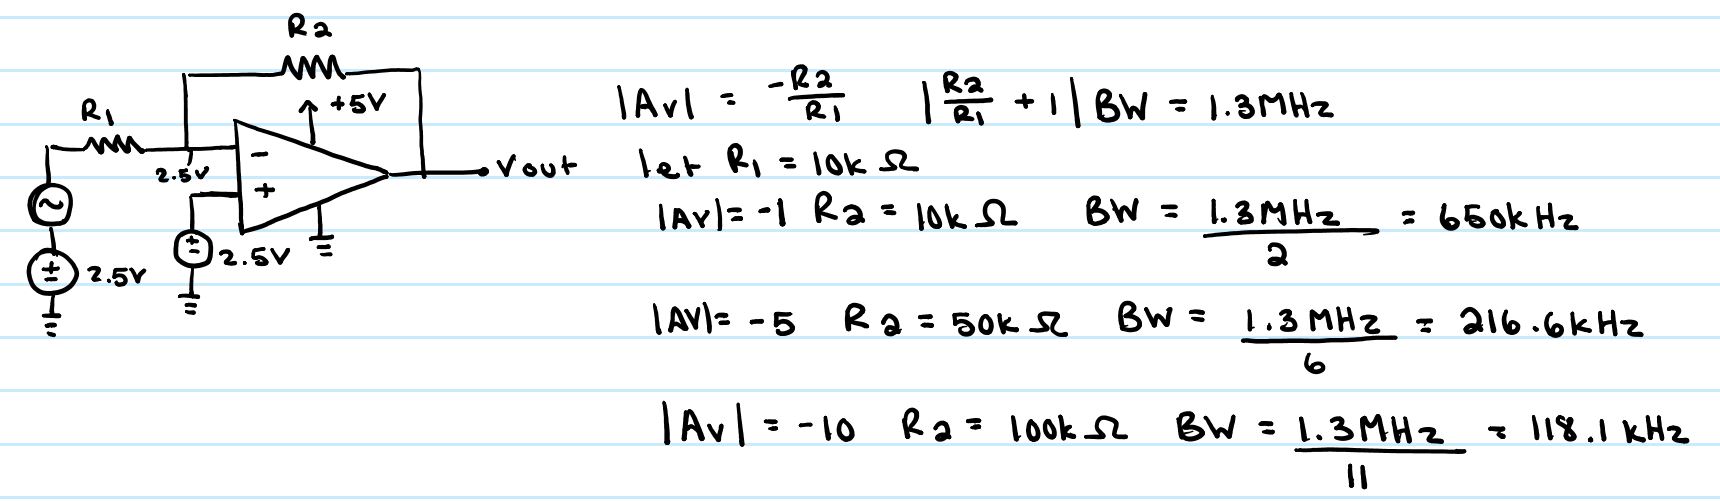 R2
+5V
R1
2.5V
- 
+
Vout
2.5V
2.5V
|Av| = -R2/R1 |R2/R1 + 1| BW = 1.3MHz
let R1 = 10k Ω
|Av| = -1 R2 = 10k Ω BW = 1.3MHz/2 = 650kHz
|AV| = -5 R2 = 50k Ω BW = 1.3MHz/6 = 216.6kHz
|Av| = -10 R2 = 100k Ω BW = 1.3MHz/11 = 118.1kHz